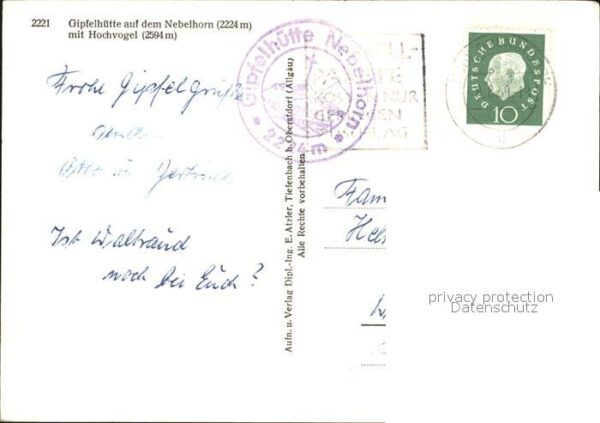 2221 Gipfelhütte auf dem Nebelhorn (2224 m)
mit Hochvogel (2594 m)
Frohe Gipfelgrüße
senden
Otto u. Gertrud
Ist Waltraud
noch bei Euch?
Gipfelhütte Nebelhorn
* 2224 m *
KOS NUR
LAG
DEUTSCHE BUNDESPOST
10
Aufn. u. Verlag Dipl.-Ing. E. Atzler, Tiefenbach b. Oberstdorf (Allgäu)
Alle Rechte vorbehalten
Fam
privacy protection
Datenschutz